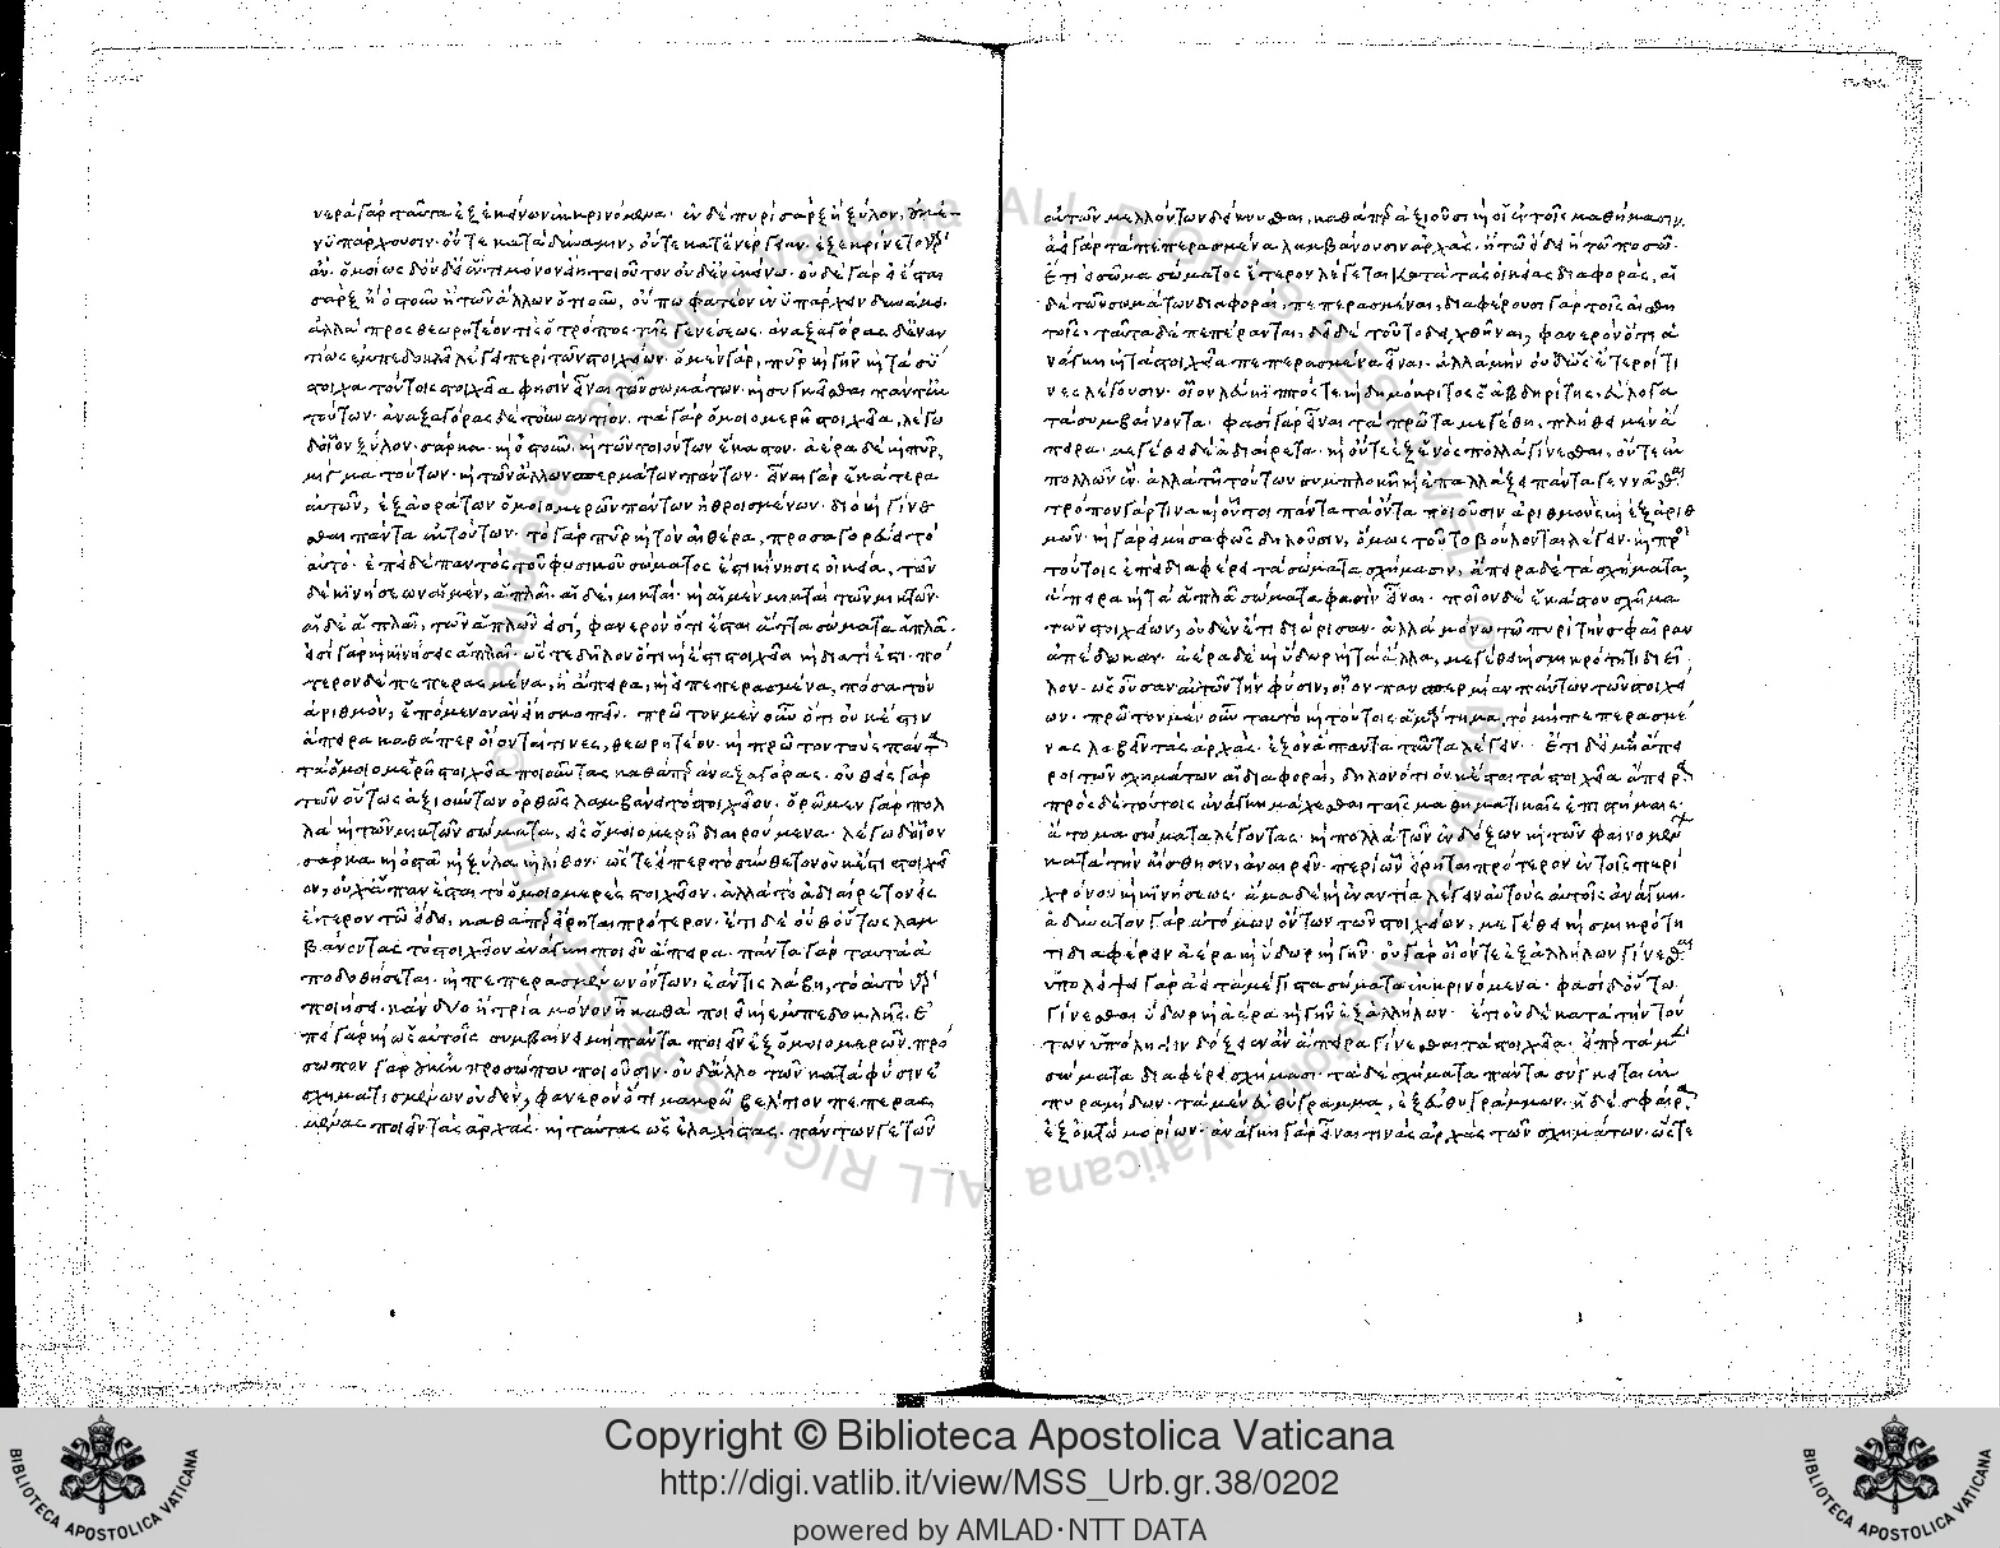 νερὰ γὰρ ταῦτα ἐξ ἐκείνων ἐκκρινόμενα· ἐν δὲ πυρὶ σὰρξ ἢ ξύλον, οὐκ ἐ-
νϋπάρχουσιν· οὔτε κατὰ δύναμιν, οὔτε κατ' ἐνέργειαν. ἐξεκρίνετο γὰρ
ἄν. ὁμοίως δ' οὐδ' εἰ ἕν τι μόνον εἴη τοιοῦτον οὐδ' ἐν ἐκείνω· οὐδὲ γὰρ εἰ ἔσται
σὰρξ ἢ ὀστοῦν ἢ τῶν ἄλλων ὁτιοῦν, οὔπω φατέον ἐνϋπάρχειν δυνάμει.
ἀλλὰ προσθεωρητέον τίς ὁ τρόπος τῆς γενέσεως. ἀναξαγόρας δ' ἐναν
τίως ἐμπεδοκλεῖ λέγει περὶ τῶν στοιχείων. ὁ μὲν γὰρ, πῦρ καὶ γῆν καὶ τὰ σύ
στοιχα τούτοις στοιχεῖα φησὶν εἶναι τῶν σωμάτων· καὶ συγκεῖσθαι πάντ' ἐκ
τούτων· ἀναξαγόρας δὲ τοὐναντίον. τὰ γὰρ ὁμοιομερῆ στοιχεῖα, λέγω
δ' οἷον ξύλον· σάρκα· καὶ ὀστοῦν· καὶ τῶν τοιούτων ἕκαστον. ἀέρα δὲ καὶ πῦρ,
μίγμα τούτων· καὶ τῶν ἄλλων σπερμάτων πάντων· εἶναι γὰρ ἑκάτερα
αὐτῶν, ἐξ ἀοράτων ὁμοιομερῶν πάντων ἠθροισμένων· διὸ καὶ γίνε
σθαι πάντα ἐκ τούτων. τὸ γὰρ πῦρ καὶ τὸν αἰθέρα, προσαγορεύει τὸ
αὐτό· ἐπεὶ δὲ παντὸς τοῦ φυσικοῦ σώματος ἐστὶ κίνησις οἰκεία, τῶν
δὲ κινήσεων αἱ μὲν, ἁπλαῖ· αἱ δὲ, μικταί· καὶ αἱ μὲν μικταὶ τῶν μικτῶν·
αἱ δὲ ἁπλαῖ, τῶν ἁπλῶν εἰσί, φανερὸν ὅτι ἔσται ἄττα σώματα ἁπλᾶ.
εἰσὶ γὰρ καὶ κινήσεις ἁπλαῖ· ὥστε δῆλον ὅτι καὶ ἔστι στοιχεῖα καὶ διατί ἐστι. πό
τερον δὲ πεπερασμένα, ἢ ἄπειρα, καὶ εἰ πεπερασμένα, πόσα τὸν
ἀριθμόν, ἑπόμενον ἂν εἴη σκοπεῖν. πρῶτον μὲν οὖν ὅτι οὐκ ἔστιν
ἄπειρα καθάπερ οἴονταί τινες, θεωρητέον· καὶ πρῶτον τοὺς πάντα
τὰ ὁμοιομερῆ στοιχεῖα ποιοῦντας καθάπερ ἀναξαγόρας. οὐθεὶς γὰρ
τῶν οὕτως ἀξιούντων ὀρθῶς λαμβάνει τὸ στοιχεῖον. ὁρῶμεν γὰρ πολ
λὰ καὶ τῶν μικτῶν σωμάτων, εἰς ὁμοιομερῆ διαιρούμενα· λέγω δ' οἷον
σάρκα καὶ ὀστοῦν καὶ ξύλα καὶ λίθον· ὥστ' εἴπερ τὸ σύνθετον οὐκ ἔστι στοιχεῖ
ον, οὐχ ἅπαν ἔσται τὸ ὁμοιομερὲς στοιχεῖον. ἀλλὰ τὸ ἀδιαίρετον εἰς
ἕτερον τῶ εἴδει, καθάπερ εἴρηται πρότερον· ἔτι δὲ οὐθ' οὕτως λαμ
βάνοντας τὸ στοιχεῖον ἀνάγκη ποιεῖν ἄπειρα· πάντα γὰρ ταυτὰ ἀ
ποδοθήσεται· καὶ πεπερασμένων ὄντων, ἐάν τις λάβη, τὸ αὐτὸ γὰρ
ποιήσει· κἂν δύο ἢ τρία μόνον ᾖ καθὰ ποιεῖ καὶ ἐμπεδοκλῆς. ἐ
πεὶ γὰρ καὶ ὣς αὐτοῖς συμβαίνει μὴ πάντα ποιεῖν ἐξ ὁμοιομερῶν. πρό
σωπον γὰρ οὐκ ἐκ προσώπου ποιοῦσιν· οὐδ' ἄλλο τῶν κατὰ φύσιν ἐ
σχηματισμένων οὐδέν, φανερὸν ὅτι μακρῶ βέλτιον πεπερας
μένας ποιεῖν τὰς ἀρχάς· καὶ ταύτας ὡς ἐλαχίστας. πάντων γε τῶν
αὐτῶν μελλόντων δείκνυσθαι, καθάπερ ἀξιοῦσι καὶ οἱ ἐν τοῖς μαθήμασιν.
ἀεὶ γὰρ τὰ πεπερασμένα λαμβάνουσιν ἀρχάς· ἢ τῶ εἴδει ἢ τῶ ποσῶ.
ἔτι εἰ σῶμα σώματος ἕτερον λέγεται κατὰ τὰς οἰκείας διαφοράς, αἱ
δὲ τῶν σωμάτων διαφοραὶ, πεπερασμέναι, διαφέρουσι γὰρ τοῖς αἰσθη
τοῖς· ταῦτα δὲ πεπέρανται, δεῖ δὲ τοῦτο δειχθῆναι, φανερὸν ὅτι ἀ
νάγκη καὶ τὰ στοιχεῖα πεπερασμένα εἶναι. ἀλλὰ μὴν οὐδ' ὡς ἕτεροί τι
νες λέγουσιν· οἷον λεύκιππός τε καὶ δημόκριτος ὁ ἀβδηρίτης, εὔλογα
τὰ συμβαίνοντα. φασὶ γὰρ εἶναι τὰ πρῶτα μεγέθη, πλήθει μὲν ἄ
πειρα· μεγέθει δὲ ἀδιαίρετα· καὶ οὔτε ἐξ ἑνὸς πολλὰ γίνεσθαι, οὔτε ἐκ
πολλῶν ἕν· ἀλλὰ τῆ τούτων συμπλοκῆ καὶ ἐπαλλάξει πάντα γεννᾶσθαι
τρόπον γάρ τινα καὶ οὗτοι πάντα τὰ ὄντα ποιοῦσιν ἀριθμοὺς καὶ ἐξ ἀριθ
μῶν· καὶ γὰρ εἰ μὴ σαφῶς δηλοῦσιν, ὅμως τοῦτο βούλονται λέγειν. καὶ πρὸς
τούτοις ἐπεὶ διαφέρει τὰ σώματα σχήμασιν, ἄπειρα δὲ τὰ σχήματα,
ἄπειρα καὶ τὰ ἁπλᾶ σώματα φασὶν εἶναι. ποῖον δὲ ἑκάστου σχῆμα
τῶν στοιχείων, οὐδὲν ἔτι διώρισαν· ἀλλὰ μόνω τῶ πυρὶ τὴν σφαῖραν
ἀπέδωκαν. ἀέρα δὲ καὶ ὕδωρ καὶ τἆλλα, μεγέθει καὶ σμικρότητι διεῖ
λον· ὡς οὖσαν αὐτῶν τὴν φύσιν, οἷον πανσπερμίαν πάντων τῶν στοιχεί
ων. πρῶτον μὲν οὖν ταυτὸ καὶ τούτοις ἁμάρτημα, τὸ μὴ πεπερασμέ
νας λαβεῖν τὰς ἀρχάς· ἐξὸν ἅπαντα ταῦτα λέγειν. ἔτι δ' εἰ μὴ ἄπει
ροι τῶν σχημάτων αἱ διαφοραί, δῆλον ὅτι οὐκ ἔσται τὰ στοιχεῖα ἄπειρα
πρὸς δὲ τούτοις ἀνάγκη μάχεσθαι ταῖς μαθηματικαῖς ἐπιστήμαις·
ἄτομα σώματα λέγοντας· καὶ πολλὰ τῶν ἐνδόξων καὶ τῶν φαινομένων
κατὰ τὴν αἴσθησιν, ἀναιρεῖν· περὶ ὧν εἴρηται πρότερον ἐν τοῖς περὶ
χρόνου καὶ κινήσεως· ἅμα δὲ καὶ ἐναντία λέγειν αὐτοὺς αὐτοῖς ἀνάγκη·
ἀδύνατον γὰρ ἀτόμων ὄντων τῶν στοιχείων, μεγέθει καὶ σμικρότη
τι διαφέρειν ἀέρα καὶ ὕδωρ καὶ γῆν· οὐ γὰρ οἷόν τε ἐξ ἀλλήλων γίνεσθαι
ὑπολείψει γὰρ ἀεὶ τὰ μέγιστα σώματα ἐκκρινόμενα· φασὶ δ' οὕτω
γίνεσθαι ὕδωρ καὶ ἀέρα καὶ γῆν ἐξ ἀλλήλων· ἔτι οὐδὲ κατὰ τὴν τού
των ὑπόληψιν δόξειεν ἂν ἄπειρα γίνεσθαι τὰ στοιχεῖα· εἴπερ τὰ μὲν
σώματα διαφέρει σχήμασι· τὰ δὲ σχήματα πάντα σύγκειται ἐκ
πυραμίδων· τὰ μὲν εὐθύγραμμα, ἐξ εὐθυγράμμων· ἡ δὲ σφαῖρα
ἐξ ὀκτὼ μορίων· ἀνάγκη γὰρ εἶναι τινὰς ἀρχὰς τῶν σχημάτων· ὥστε
Copyright © Biblioteca Apostolica Vaticana
http://digi.vatlib.it/view/MSS_Urb.gr.38/0202
powered by AMLAD·NTT DATA
BIBLIOTECA APOSTOLICA VATICANA
BIBLIOTECA APOSTOLICA VATICANA